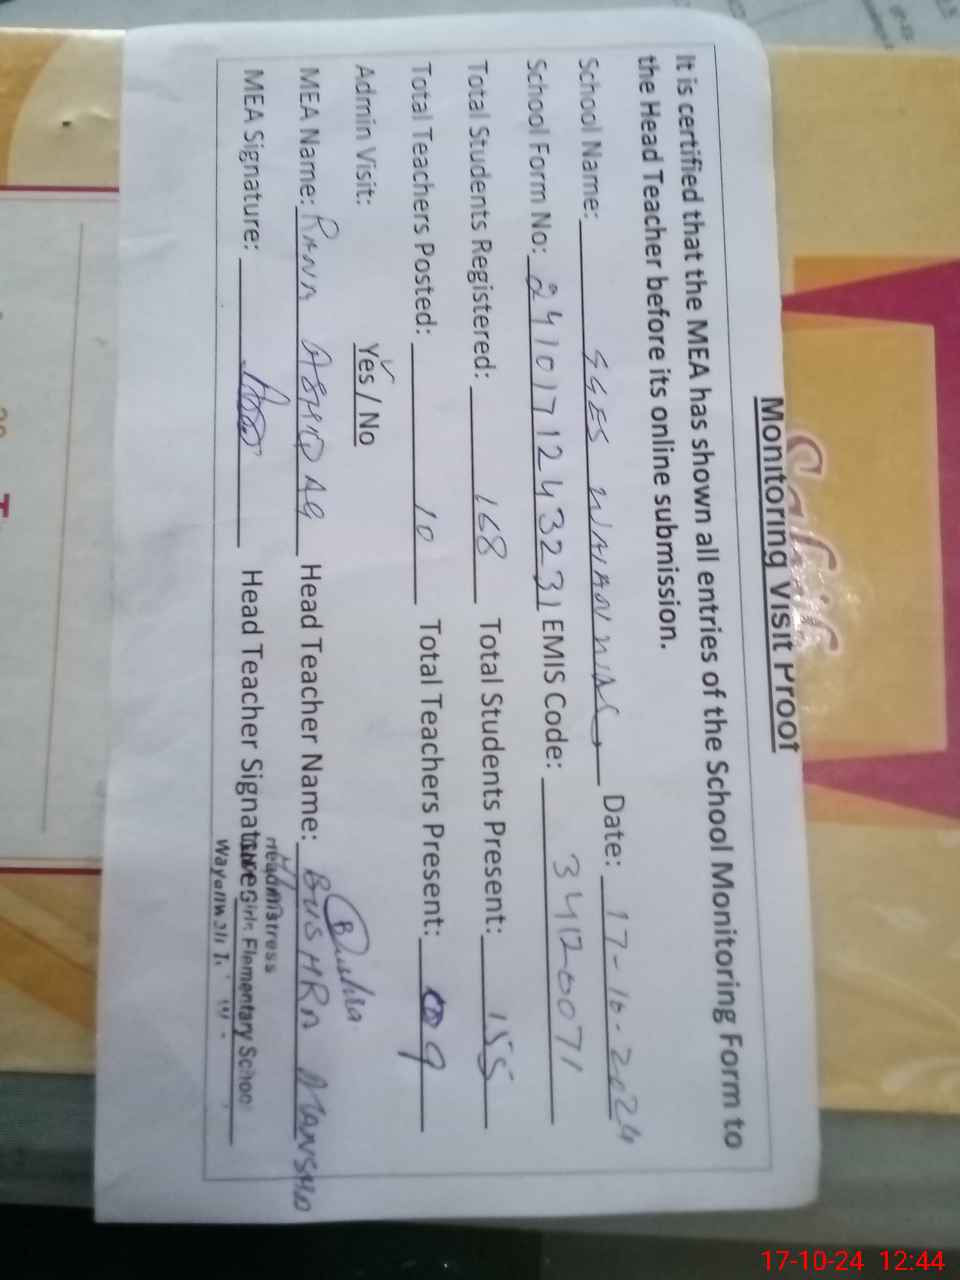 Monitoring Visit Proof
It is certified that the MEA has shown all entries of the School Monitoring Form to
the Head Teacher before its online submission.
School Name: GGES Date: 17-10-2024
School Form No: 2410171243231 EMIS Code: 34120071
Total Students Registered: 168 Total Students Present: 155
Total Teachers Posted: 10 Total Teachers Present: 9
Admin Visit: Yes / No
Bushra
MEA Name: RANA ASHFAQ Head Teacher Name: BUSHRA
MEA Signature: Head Teacher Signature:
Headmistress
Girls Elementary School
17-10-24 12:44